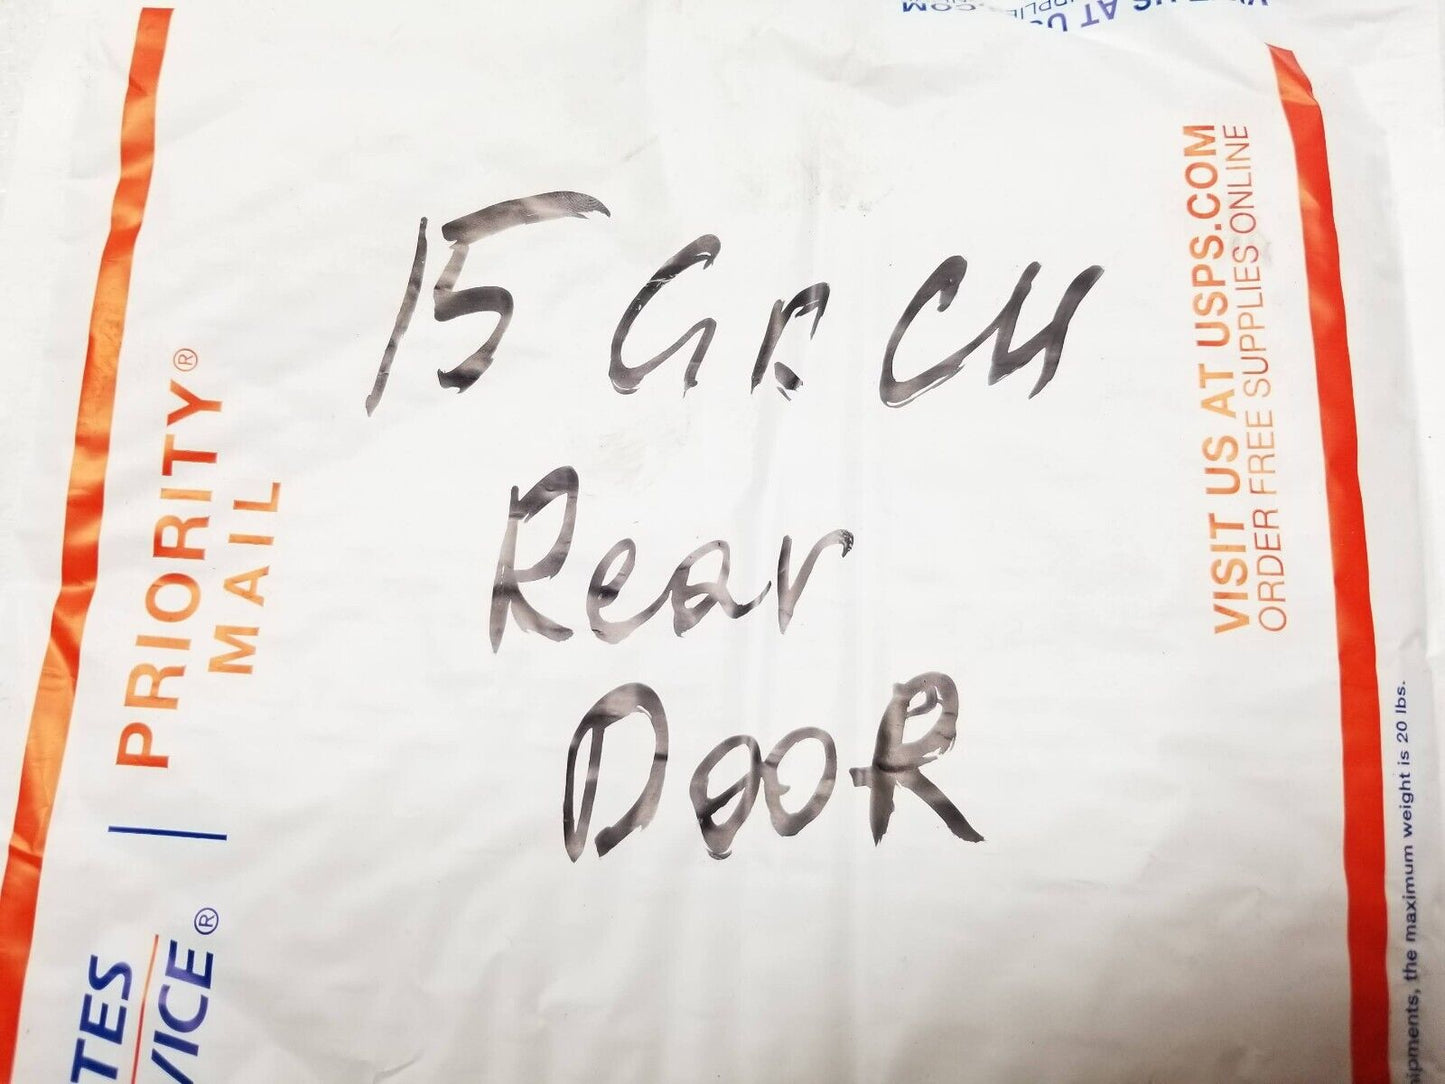 15 Gr CH
Rear
DOOR
PRIORITY®
MAIL
TES
VICE®
VISIT US AT USPS.COM
ORDER FREE SUPPLIES ONLINE
ipments, the maximum weight is 20 lbs.
US AT US
.COM